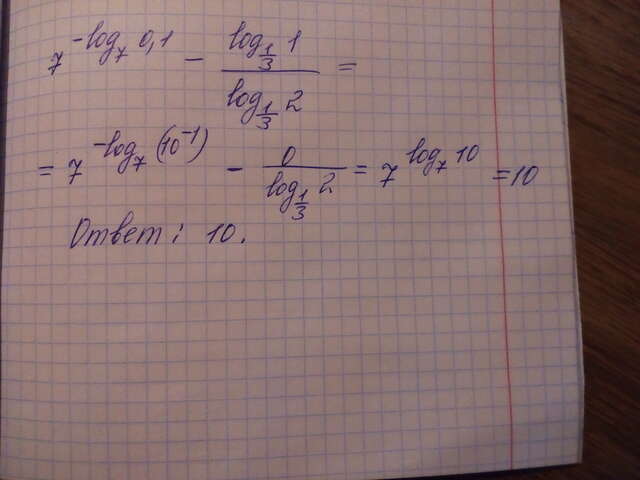 7^{-log_7 0,1} - \frac{log_{\frac{1}{3}} 1}{log_{\frac{1}{3}} 2} =
= 7^{-log_7 (10^{-1})} - \frac{0}{log_{\frac{1}{3}} 2} = 7^{log_7 10} = 10
Ответ: 10.